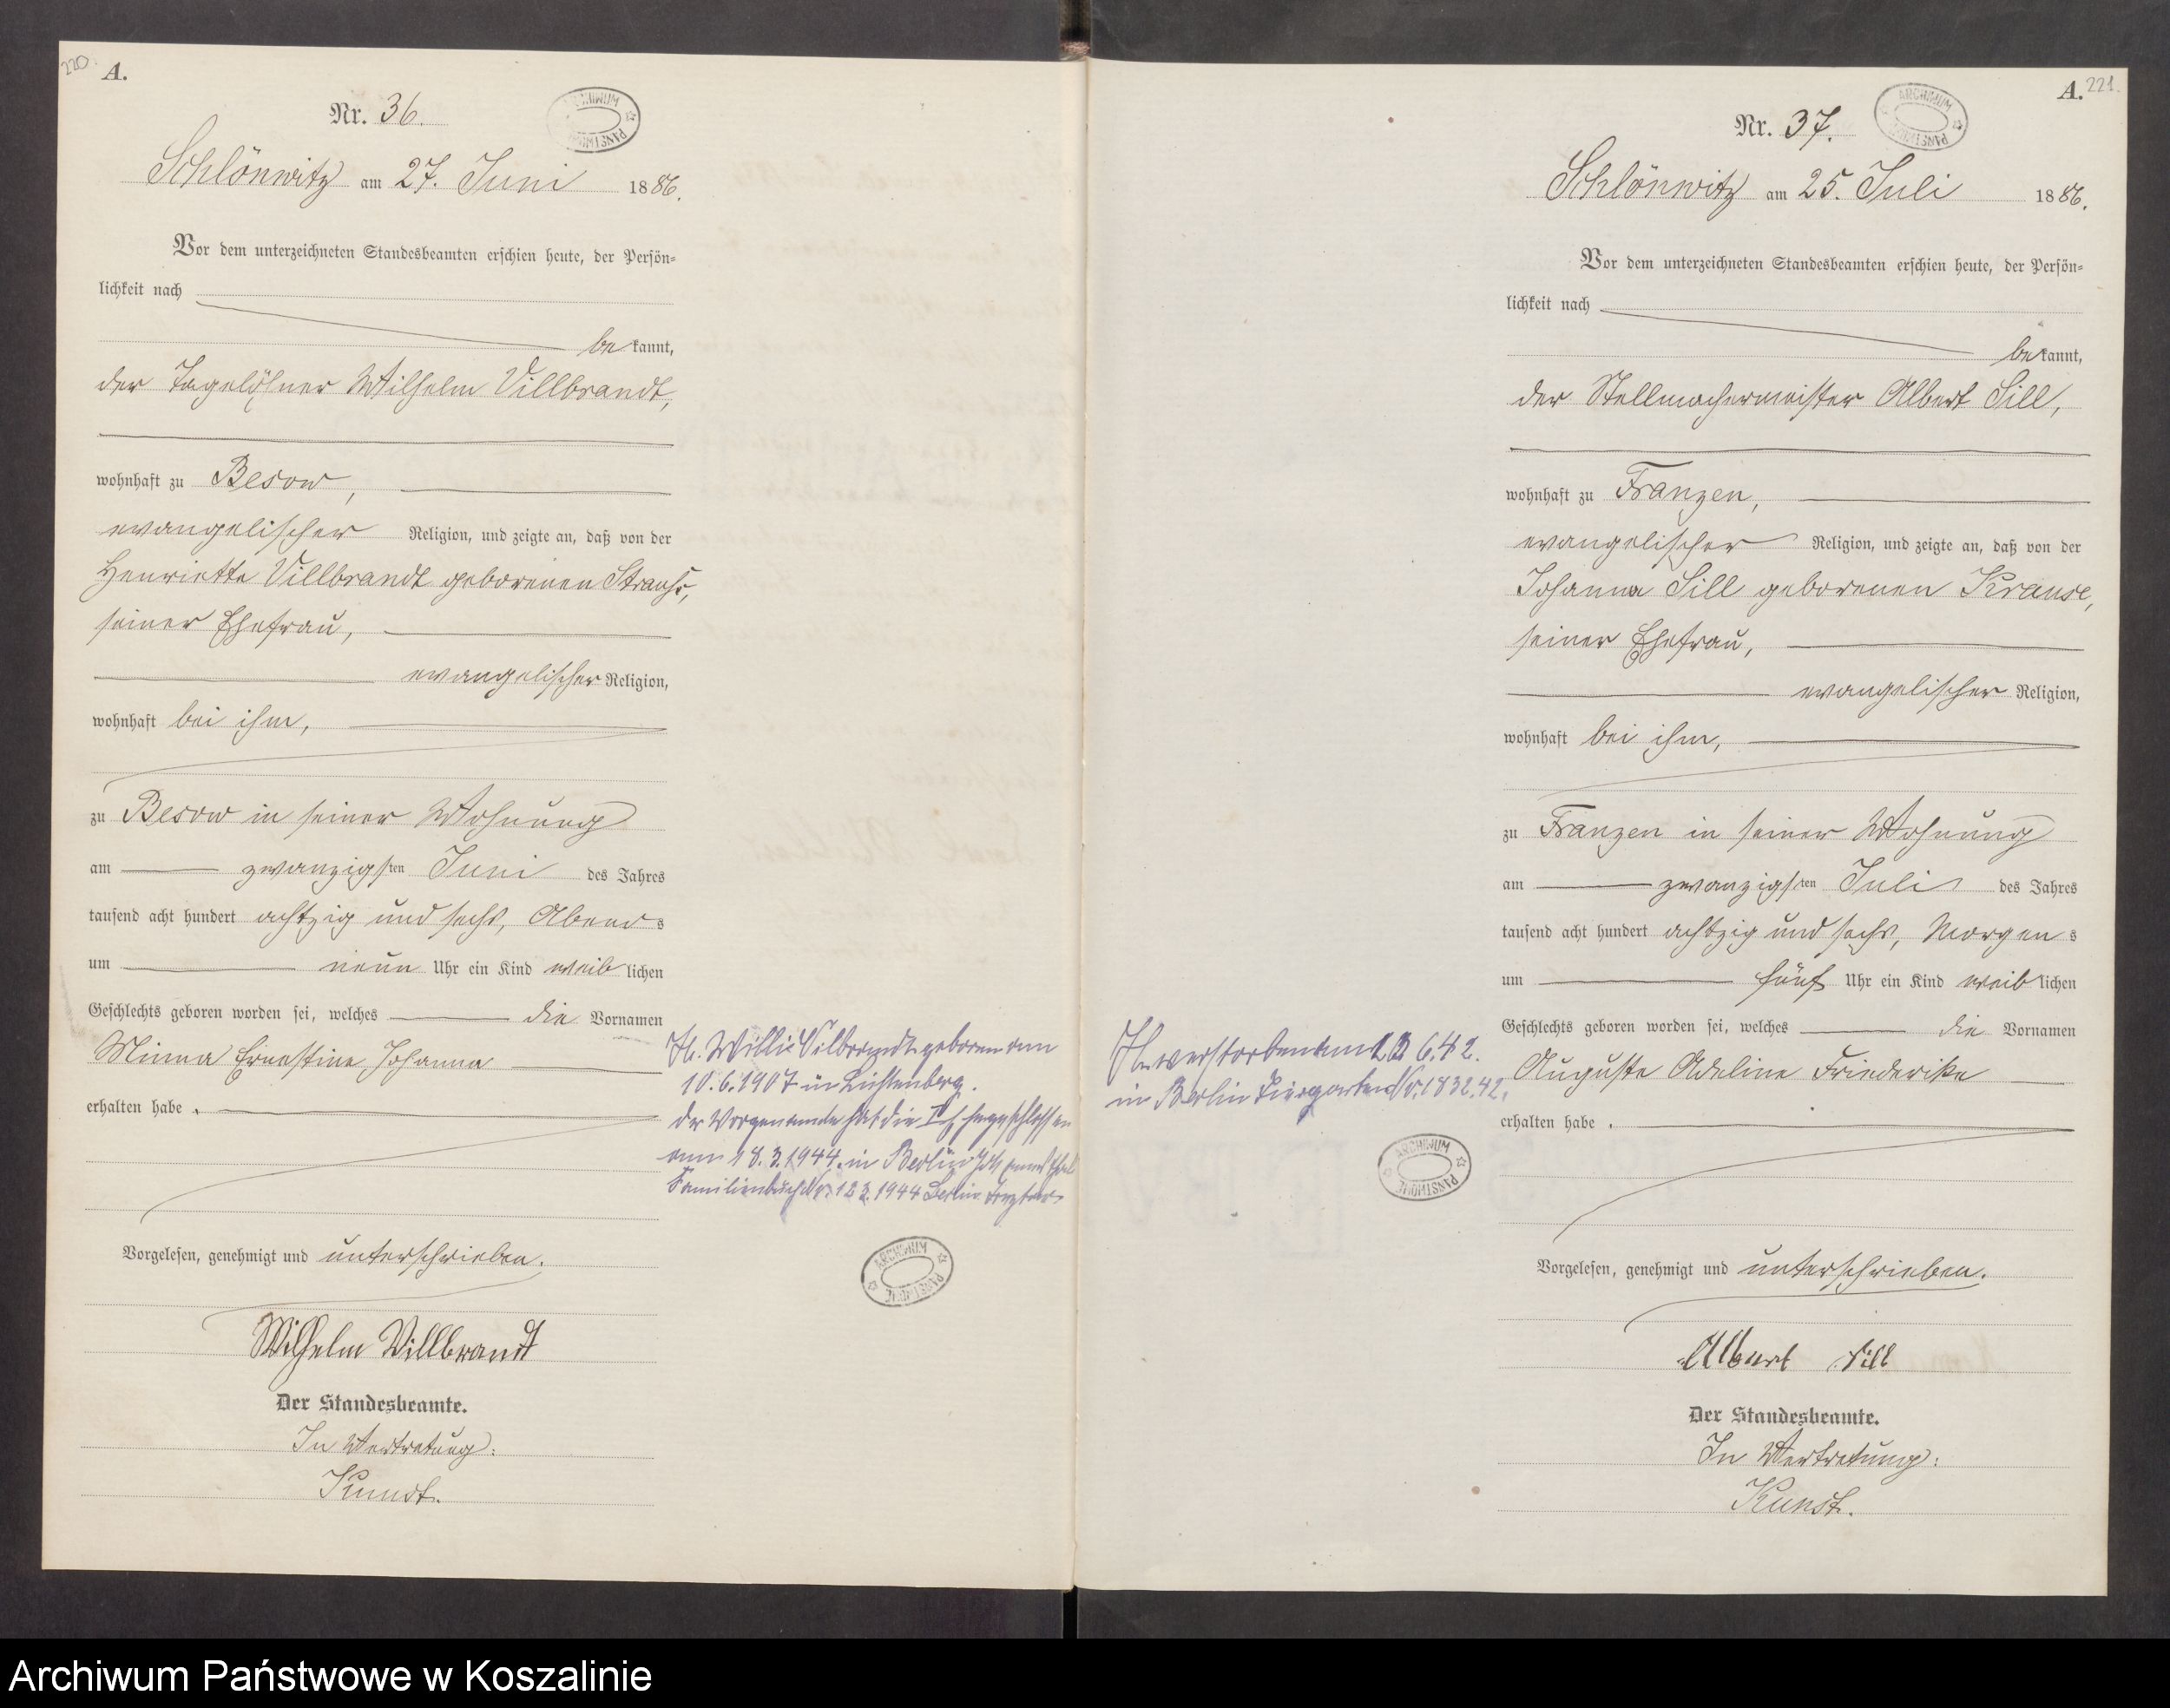 220.
A.
Nr. 36.
ARCHIWUM PAŃSTWOWE
Schlönwitz am 27. Juni 1886.
Vor dem unterzeichneten Standesbeamten erschien heute, der Persön-
lichkeit nach
bekannt,
der Tagelöhner Wilhelm Villbrandt,
wohnhaft zu Besow,
evangelischer Religion, und zeigte an, daß von der
Henriette Villbrandt geborenen Strauß,
seiner Ehefrau,
evangelischer Religion,
wohnhaft bei ihm,
zu Besow in seiner Wohnung
am zwanzigsten Juni des Jahres
tausend acht hundert achtzig und sechs, Abends
um neun Uhr ein Kind weiblichen
Geschlechts geboren worden sei, welches die Vornamen
Minna Ernestine Johanna
erhalten habe.
Vorgelesen, genehmigt und unterschrieben.
Wilhelm Villbrandt
Der Standesbeamte.
In Vertretung:
Kunst.
Willi Vilbrandt geboren am
10.6.1907 in Lichtenberg.
der Vorgenannte hat die Ehe geschlossen
am 18.3.1944. in Berlin
Familienbuch Nr. 123.1944 Berlin
ARCHIWUM PAŃSTWOWE
A.
221.
Nr. 37.
ARCHIWUM PAŃSTWOWE
Schlönwitz am 25. Juli 1886.
Vor dem unterzeichneten Standesbeamten erschien heute, der Persön-
lichkeit nach
bekannt,
der Stellmachermeister Albert Sill,
wohnhaft zu Franzen,
evangelischer Religion, und zeigte an, daß von der
Johanna Sill geborenen Krause,
seiner Ehefrau,
evangelischer Religion,
wohnhaft bei ihm,
zu Franzen in seiner Wohnung
am zwanzigsten Juli des Jahres
tausend acht hundert achtzig und sechs, Morgens
um fünf Uhr ein Kind weiblichen
Geschlechts geboren worden sei, welches die Vornamen
Auguste Adeline Friederike
erhalten habe.
Vorgelesen, genehmigt und unterschrieben.
Albert Sill
Der Standesbeamte.
In Vertretung:
Kunst.
verstorben am 6.42.
in Berlin Tiergarten Nr. 1832.42.
ARCHIWUM PAŃSTWOWE
Archiwum Państwowe w Koszalinie